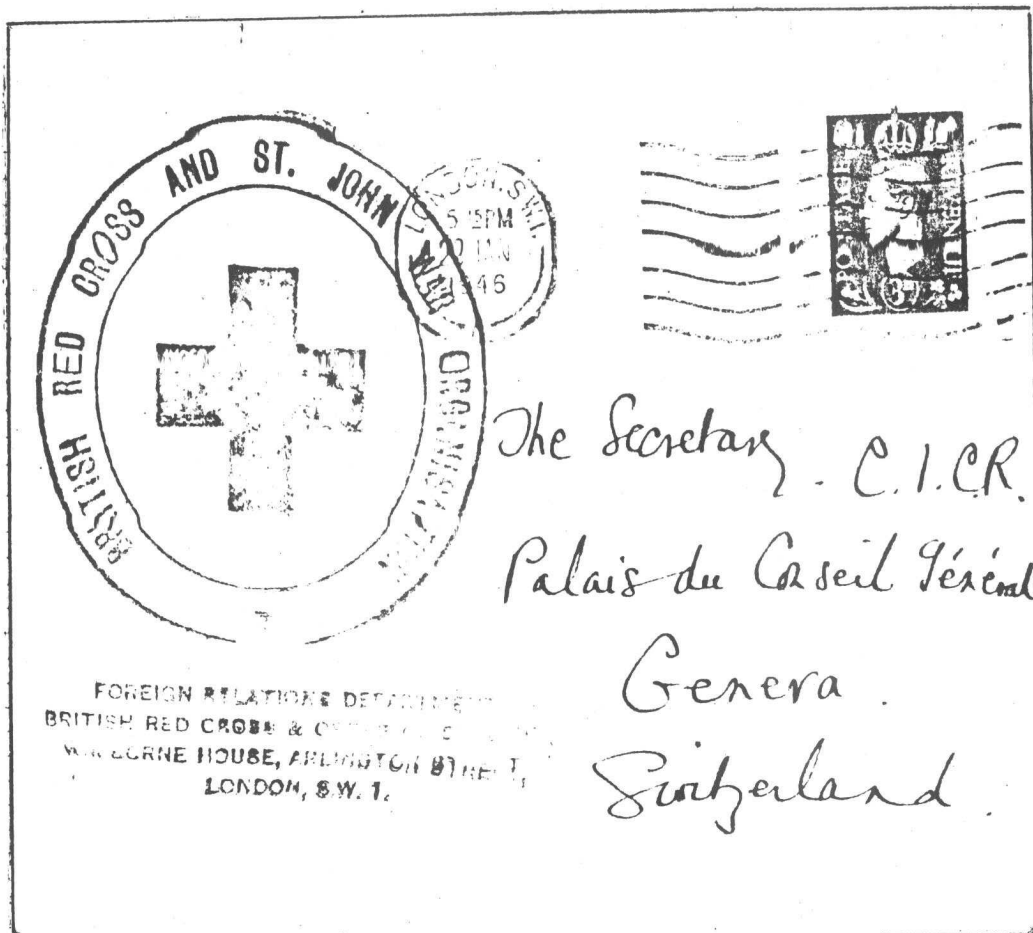 BRITISH RED CROSS AND ST. JOHN WAR ORGANISATION
LONDON. S.W.1.
5 15PM
JAN
1946
POSTAGE
REVENUE
3D
The Secretary. C.I.C.R.
Palais du Conseil Général
Geneva.
Switzerland.
FOREIGN RELATIONS DEPARTMENT
BRITISH RED CROSS &
HOUSE, ARLINGTON STREET,
LONDON, S.W. 1.